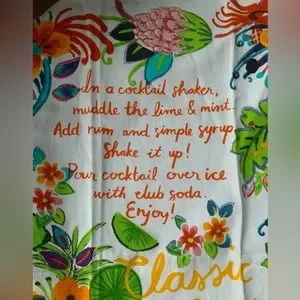 In a cocktail shaker,
muddle the lime & mint.
Add rum and simple syrup.
Shake it up!
Pour cocktail over ice
with club soda.
Enjoy!
Classic